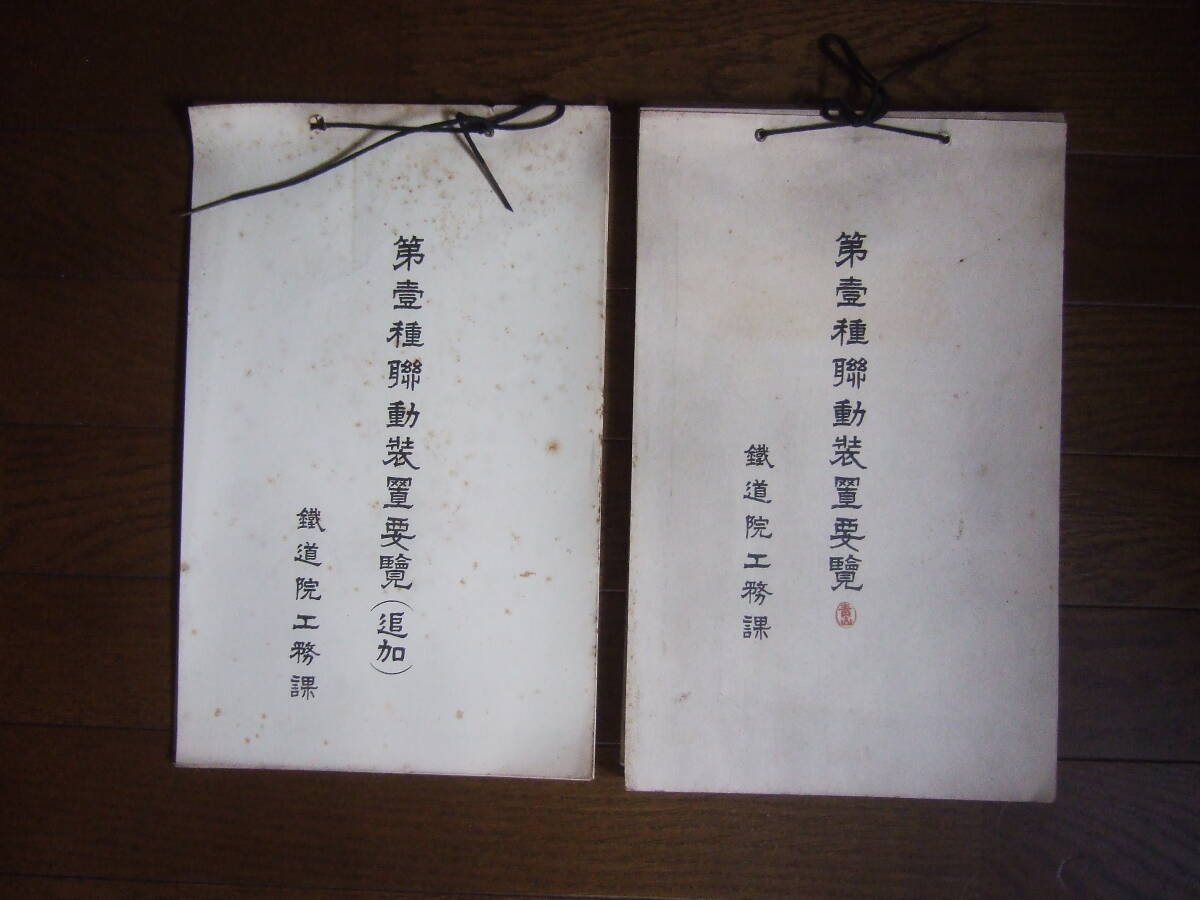 第壹種聯動装置要覽
鐵道院工務課
青山
第壹種聯動装置要覽(追加)
鐵道院工務課